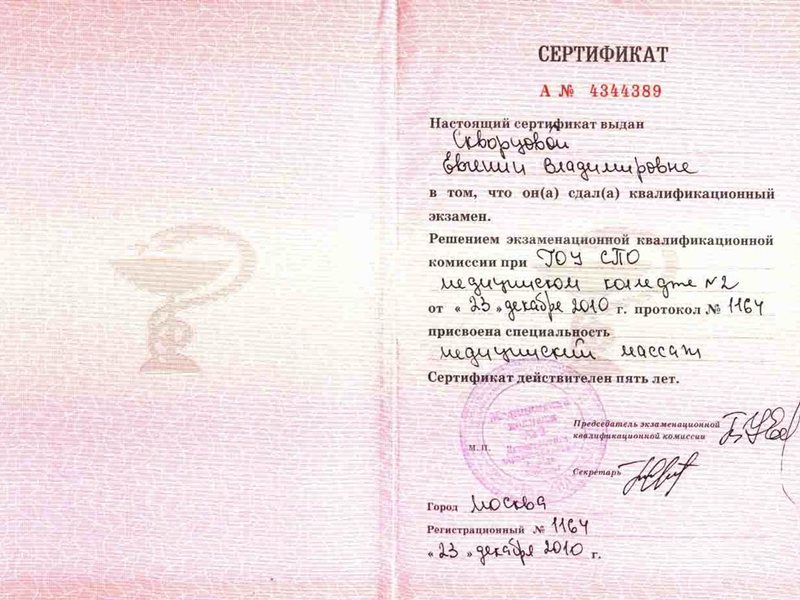 СЕРТИФИКАТ
А № 4344389
Настоящий сертификат выдан
Скворцовой
Евгении Владимировне
в том, что он(а) сдал(а) квалификационный
экзамен.
Решением экзаменационной квалификационной
комиссии при ГОУ СПО
медицинском колледже №2
от « 23 » декабря 2010 г. протокол № 1164
присвоена специальность
медицинский массаж
Сертификат действителен пять лет.
Председатель экзаменационной
квалификационной комиссии
М. П.
Секретарь
Город Москва
Регистрационный № 1164
« 23 » декабря 2010 г.